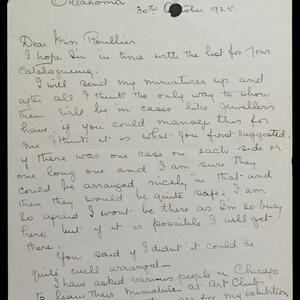 Oklahoma
30th October 1925.
Dear Miss Roullier.
I hope I'm in time with the list for your
Cataloguing.
I will send my miniatures up. and
after all I think the only way to show
them will be in cases like Jewellers
have, if you could manage this for
me I think it is what you first suggested.
if there was one case on each side or
one long one and I am sure they
could be arranged nicely in that and
then they would be quite safe. I am
so afraid I wont be there as I'm so busy
here but if it is possible I will get
there.
You said if I didn't it could be
quite well arranged—
I have asked various people in Chicago
to leave their miniatures at Art Club
for my exhibition